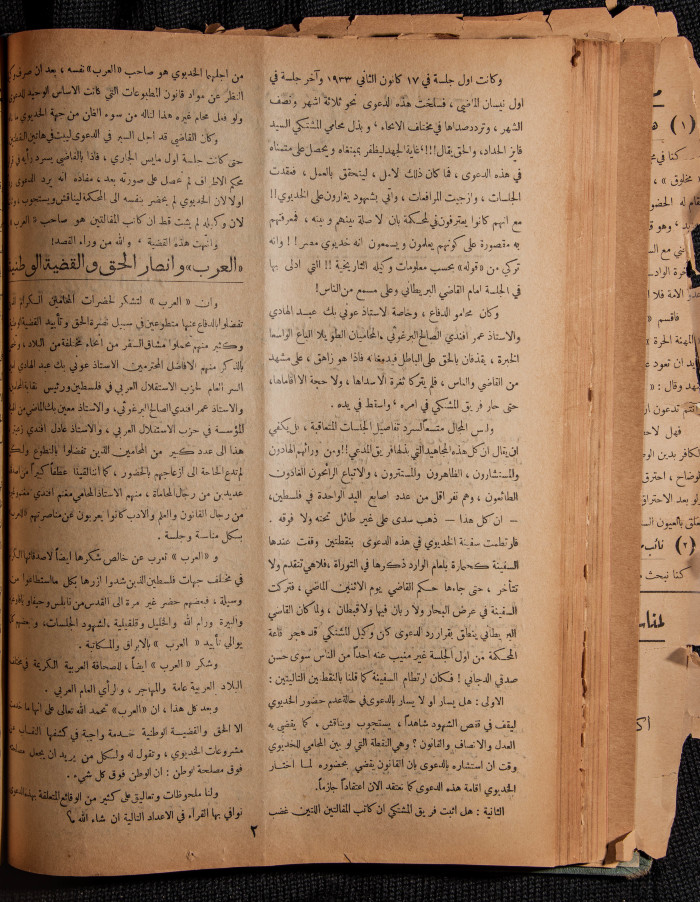 وكانت اول جلسة في ١٧ كانون الثاني ١٩٣٣ وآخر جلسة في
اول نيسان الماضي، فسلخت هذه الدعوى نحو ثلاثة اشهر ونصف
الشهر، وتردد صداها في مختلف الانحاء، وبذل محامي المشتكي السيد
فايز الحداد، والحق يقال!!! غاية الجهد ليظفر بمبتغاه ويحصل على متمناه
في هذه الدعوى، فما كان ذلك لامل، ليتحقق بالعمل، فعقدت
الجلسات، وازجيت المرافعات، وأتي بشهود يغارون على الخديوي!!
مع انهم كانوا يعترفون في المحكمة بان لا صلة بينهم وبينه، فمعرفتهم
به مقصورة على كونهم يعلمون ويسمعون انه خديوي مصر!! وانه
تركي من «قوله» بحسب معلومات وكيله التاريخية!! التي ادلى بها
في الجلسة امام القاضي البريطاني وعلى مسمع من الناس!
وكان محامو الدفاع، وخاصة لاستاذ عوني بك عبد الهادي
والاستاذ عمر أفندي الصالح البرغوثي، المحاميان الطويلا الباع الواسعا
الخبرة، يقذفان بالحق على الباطل فيدمغانه فاذا هو زاهق، على مشهد
من القاضي والناس، فلم يتركا ثغرة الا سداها، ولا حجة الا اقاماها،
حتى حار فريق المشتكي في امره، واسقط في يده.
وليس المجال متسعاً لسرد تفاصيل الجلسات المتعاقبة، بل يكفي
ان يقال ان كل هذه المجاهيد التي بذلها فريق المدعي!! ومن ورائهم الهادون
والمستشارون، الظاهرون والمستترون، والاتباع الرائحون الغادون
الطائعون، وهم نفر اقل من عدد اصابع اليد الواحدة في فلسطين،
– ان كل هذا – ذهب سدى على غير طائل تحته ولا فوقه.
فارتطمت سفينة الخديوي في هذه الدعوى بنقطتين وقفت عندها
السفينة كحمارة بلعام الوارد ذكرها في التوراة، فلاهي تتقدم ولا
تتأخر، حتى جاءها حكم القاضي يوم الاثنين الماضي، فتركت
السفينة في عرض البحار ولا ربان فيها ولا قبطان، ولما كان القاضي
البريطاني ينطق بقرار رد الدعوى كان وكيل المشتكي قد هجر قاعة
المحكمة من اول الجلسة غير منيب عنه احداً من الناس سوى حسن
صدفي الدجاني! فكان ارتطام السفينة كما قلنا بالنقطتين التاليتين:
الاولى: هل يسار او لا يسار بالدعوى في حالة عدم حضور الخديوي
ليقف في قفص الشهود شاهداً، يستجوب ويناقش، كما يقضي به
العدل والانصاف والقانون؟ وهي النقطة التي لو بين المحامي للخديوي
وقت ان استشاره بالدعوى بان القانون يقضي بحضوره لما اختار
الخديوي اقامة هذه الدعوى كما نعتقد الان اعتقاداً جازماً.
الثانية: هل اثبت فريق المشتكي ان كاتب المقالتين اللتين غضب
من اجلهما الخديوي هو صاحب «العرب» نفسه، بعد ان صرف
النظر عن مواد قانون المطبوعات التي كانت الاساس الوحيد للدعوى
ولو فعل محام غيره هذا لناله من سوء الظن من جهة الخديوي
وكان القاضي قد اجل السير في الدعوى ليبت في هاتين النقطتين
حتى كانت جلسة اول مايس الجاري، فاذا بالقاضي يسرد رأيه و
محكم الاطراف لم نحصل على صورته بعد، مفاده انه يرد الدعوى
اولا لان الخديوي لم يحضر بنفسه الى المحكمة ليناقش ويستجوب،
لان وكيله لم يثبت قط ان كاتب المقالتين هو صاحب «العرب»
وانتهت هذه القضية، والله من وراء القصد!
«العرب» وانصار الحق والقضية الوطنية
وان «العرب» لتشكر لحضرات المحامين الكرام
تفضلوا بالدفاع عنها متطوعين في سبيل نصرة الحق وتأييد القضية
وكثير منهم تحملوا مشاق السفر من أنحاء مختلفة من البلاد،
بالذكر منهم الافاضل المحترمين الاستاذ عوني بك عبد الهادي
السر العام لحزب الاستقلال العربي في فلسطين ورئيس نقابة المحامين
والاستاذ عمر افندي الصالح البرغوثي، والاستاذ معين بك الماضي من
المؤسسة في حزب الاستقلال العربي، والاستاذ عادل افندي زعيتر
هذا الى عدد كبير من المحامين الذين تفضلوا بالتطوع ولكن
لم تدع الحاجة الى ازعاجهم بالحضور، كما أننا لقينا عطفاً كبيراً من
عديدين من رجال المحاماة، منهم الاستاذ المحامي مغنم افندي مغنم
من رجال القانون والعلم والادب كانوا يعربون عن مناصرتهم «العرب
بكل مناسبة وجلسة.
و «العرب» تعرب عن خالص شكرها ايضاً لاصدقائها
في مختلف جهات فلسطين الذين شدوا ازرها بكل ما استطاعوا من
وسيلة، فبعضهم حضر غير مرة الى القدس من نابلس وحيفا ويافا
والبيرة ورام الله والخليل وقلقيلية، لشهود الجلسات،
يوالي تأييد «العرب» بالابراق والمكاتبة.
وشكر «العرب» ايضاً، للصحافة العربية الكريمة في مختلف
البلاد العربية عامة والمهاجر، والرأي العام العربي.
وبعد كل هذا، ان «العرب» تحمد الله تعالى على انها ما خدمت
الا الحق والقضية الوطنية خدمة واجبة في كشفها النقاب عن
مشروعات الخديوي، وتقول له ولكل من يريد ان يجعل مصلحته
فوق مصلحة الوطن: ان الوطن فوق كل شيء.
ولنا ملحوظات وتعاليق على كثير من الوقائع المتعلقة بهذه الدعوى
نوافي بها القراء في الاعداد التالية ان شاء الله
٢
(١)
كنا في
« مخلوق »،
(٢) نائب
كنا نبحث